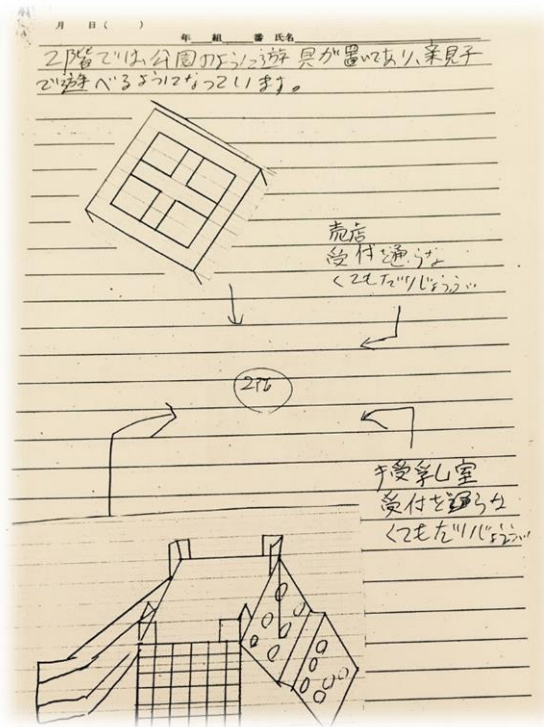 月 日( )
年 組 番 氏名
2階では、公園のように遊具が置いてあり、親子
で遊べるようになっています。
売店
受付を通らな
くてもだいじょうぶ
2階
授乳室
受付を通らな
くてもだいじょうぶ